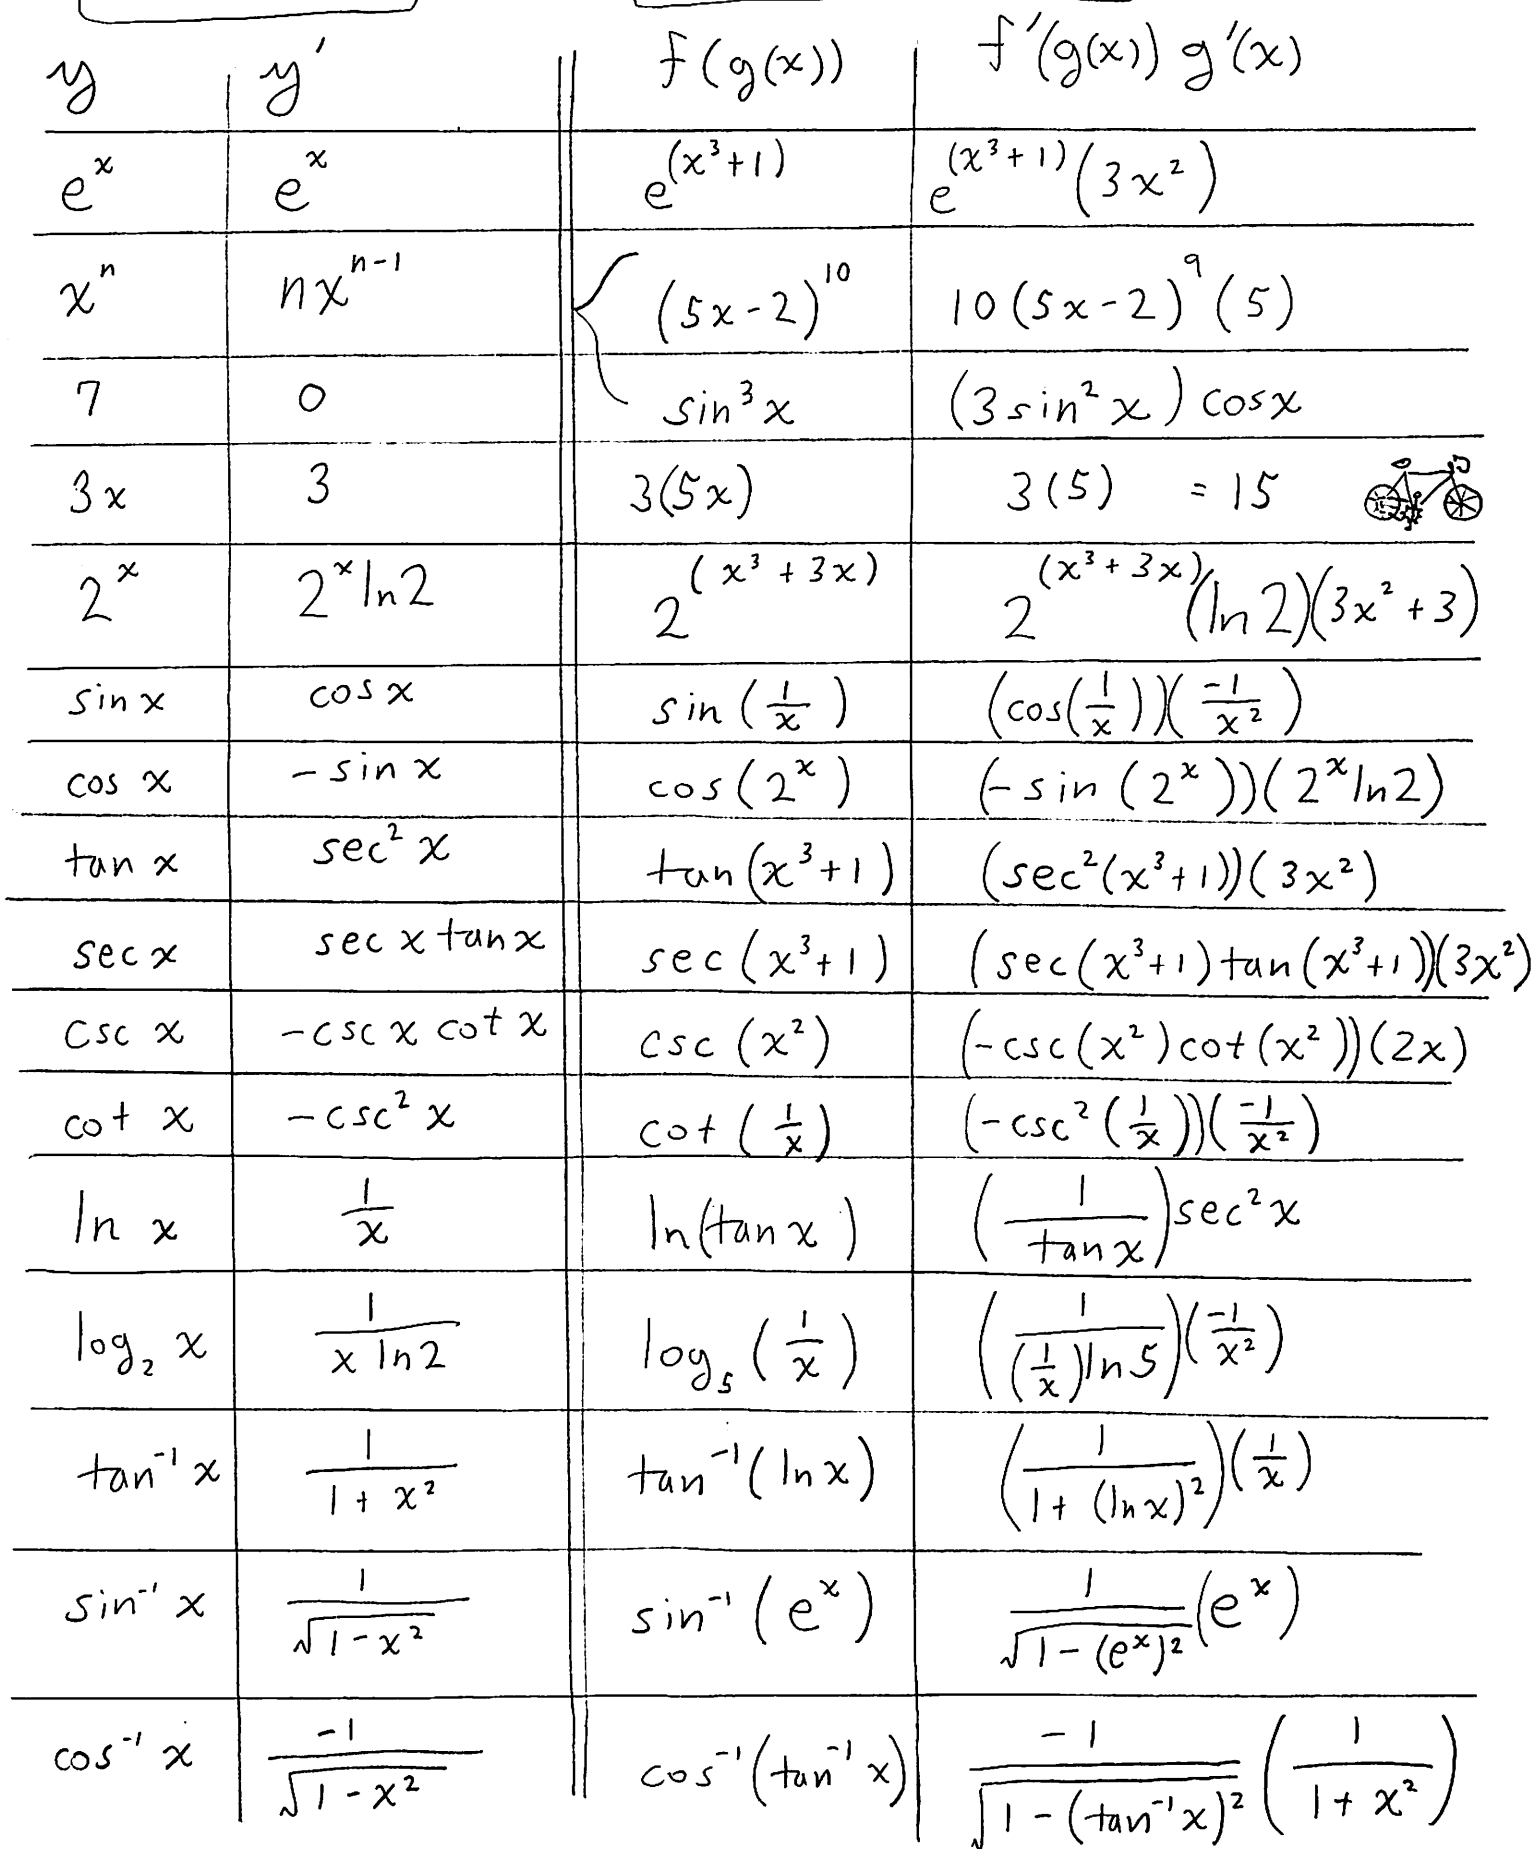 y y′ f(g(x)) f′(g(x)) g′(x)
eˣ eˣ e^(x³+1) e^(x³+1) (3x²)
xⁿ nxⁿ⁻¹ (5x-2)¹⁰ 10(5x-2)⁹(5)
7 0 sin³x (3sin²x) cosx
3x 3 3(5x) 3(5) = 15
2ˣ 2ˣ ln2 2^(x³+3x) 2^(x³+3x) (ln 2)(3x²+3)
sin x cos x sin(1/x) (cos(1/x))(-1/x²)
cos x -sin x cos(2ˣ) (-sin(2ˣ))(2ˣ ln2)
tan x sec² x tan(x³+1) (sec²(x³+1))(3x²)
sec x sec x tan x sec(x³+1) (sec(x³+1)tan(x³+1))(3x²)
csc x -csc x cot x csc(x²) (-csc(x²)cot(x²))(2x)
cot x -csc² x cot(1/x) (-csc²(1/x))(-1/x²)
ln x 1/x ln(tan x) (1/tan x) sec² x
log₂ x 1/(x ln2) log₅(1/x) (1/((1/x)ln5))(-1/x²)
tan⁻¹ x 1/(1+x²) tan⁻¹(ln x) (1/(1+(ln x)²))(1/x)
sin⁻¹ x 1/√(1-x²) sin⁻¹(eˣ) 1/√(1-(eˣ)²) (eˣ)
cos⁻¹ x -1/√(1-x²) cos⁻¹(tan⁻¹ x) -1/√(1-(tan⁻¹x)²) (1/(1+x²))